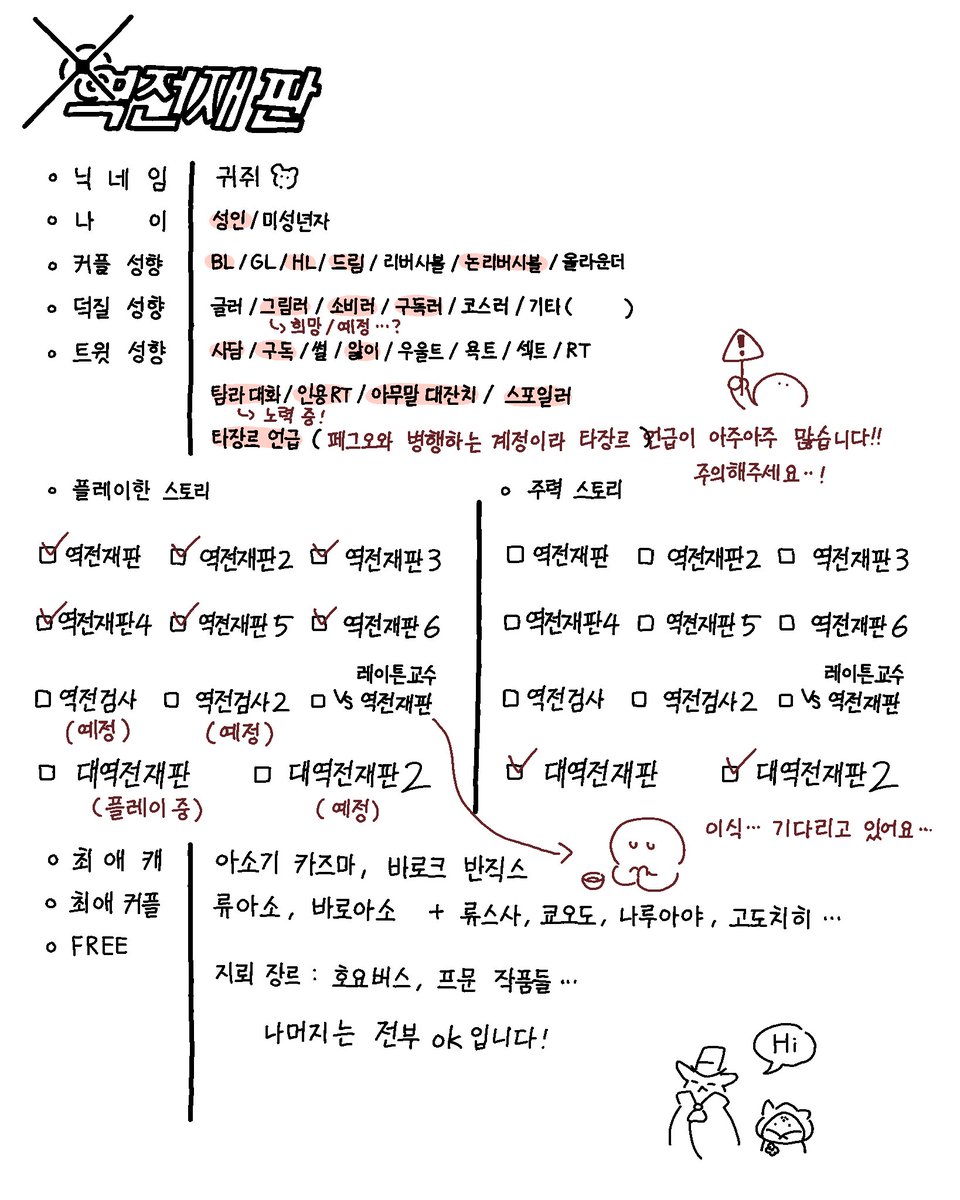 역전재판
• 닉네임 귀쥐
• 나이 성인 / 미성년자
• 커플 성향 BL / GL / HL / 드림 / 리버시블 / 논리버시블 / 올라운더
• 덕질 성향 글러 / 그림러 / 소비러 / 구독러 / 코스러 / 기타 ( )
↳ 희망 / 예정…?
• 트윗 성향 사담 / 구독 / 썰 / 앓이 / 우울트 / 욕트 / 섹트 / RT
탐라 대화 / 인용RT / 아무말 대잔치 / 스포일러
↳ 노력 중!
타장르 언급 ( 페그오와 병행하는 계정이라 타장르 언급이 아주아주 많습니다!!
주의해주세요..!
!
• 플레이한 스토리
☑ 역전재판 ☑ 역전재판2 ☑ 역전재판3
☑ 역전재판4 ☑ 역전재판5 ☑ 역전재판6
☐ 역전검사 ☐ 역전검사2 ☐ 레이튼교수 VS 역전재판
(예정) (예정)
☐ 대역전재판 ☐ 대역전재판2
(플레이 중) (예정)
• 주력 스토리
☐ 역전재판 ☐ 역전재판2 ☐ 역전재판3
☐ 역전재판4 ☐ 역전재판5 ☐ 역전재판6
☐ 역전검사 ☐ 역전검사2 ☐ 레이튼교수 VS 역전재판
☑ 대역전재판 ☑ 대역전재판2
이식… 기다리고 있어요…
• 최애캐 아소기 카즈마, 바로크 반직스
• 최애 커플 류아소, 바로아소 + 류스사, 쿄오도, 나루아야, 고도치히…
• FREE
지뢰 장르 : 호요버스, 프문 작품들…
나머지는 전부 ok입니다!
Hi